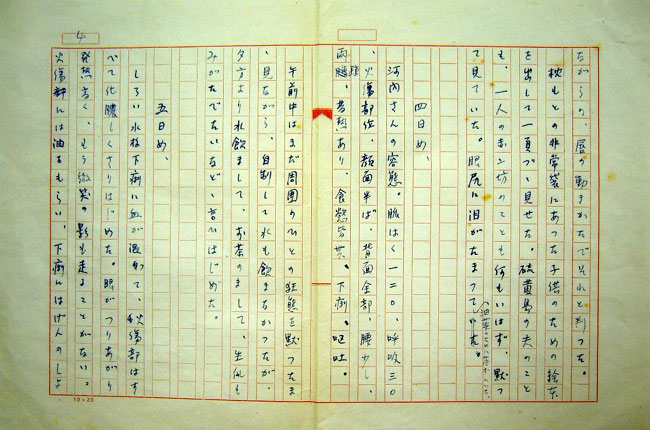 ながらの、唇の動きかたでそれと判った。
枕もとの非常袋にあった子供のための絵本
を出して一頁づゝ見せた。硫黄島の夫のこと
も、一人の赤ン坊のことも何もいはず、黙つ
て見ていた。眼尻に泪がたまっていた。
四日め、
河内さんの容態。脈はく一二〇、呼吸三〇
、火傷部位、顔面半ば、背面全部、腰少し、
両腿、昔熱あり、食慾皆無、下痢、嘔吐。
午前中はまだ周囲のひとの狂態を黙つたま
、見ながら、自制して水も飲まなかつたが、
夕方より水飲まして、お茶のまして、生瓜も
みがたべたいなどゝ言ひはじめた。
五日め、
しろい水ね下痢に血が混つて、火傷部はす
べて化膿しくさりはじめた。眼がつりあがり
発熱高く、もう微笑の影も走ることがない。
火傷部には油をもらい、下痢にはげんのしよ
4
10×20